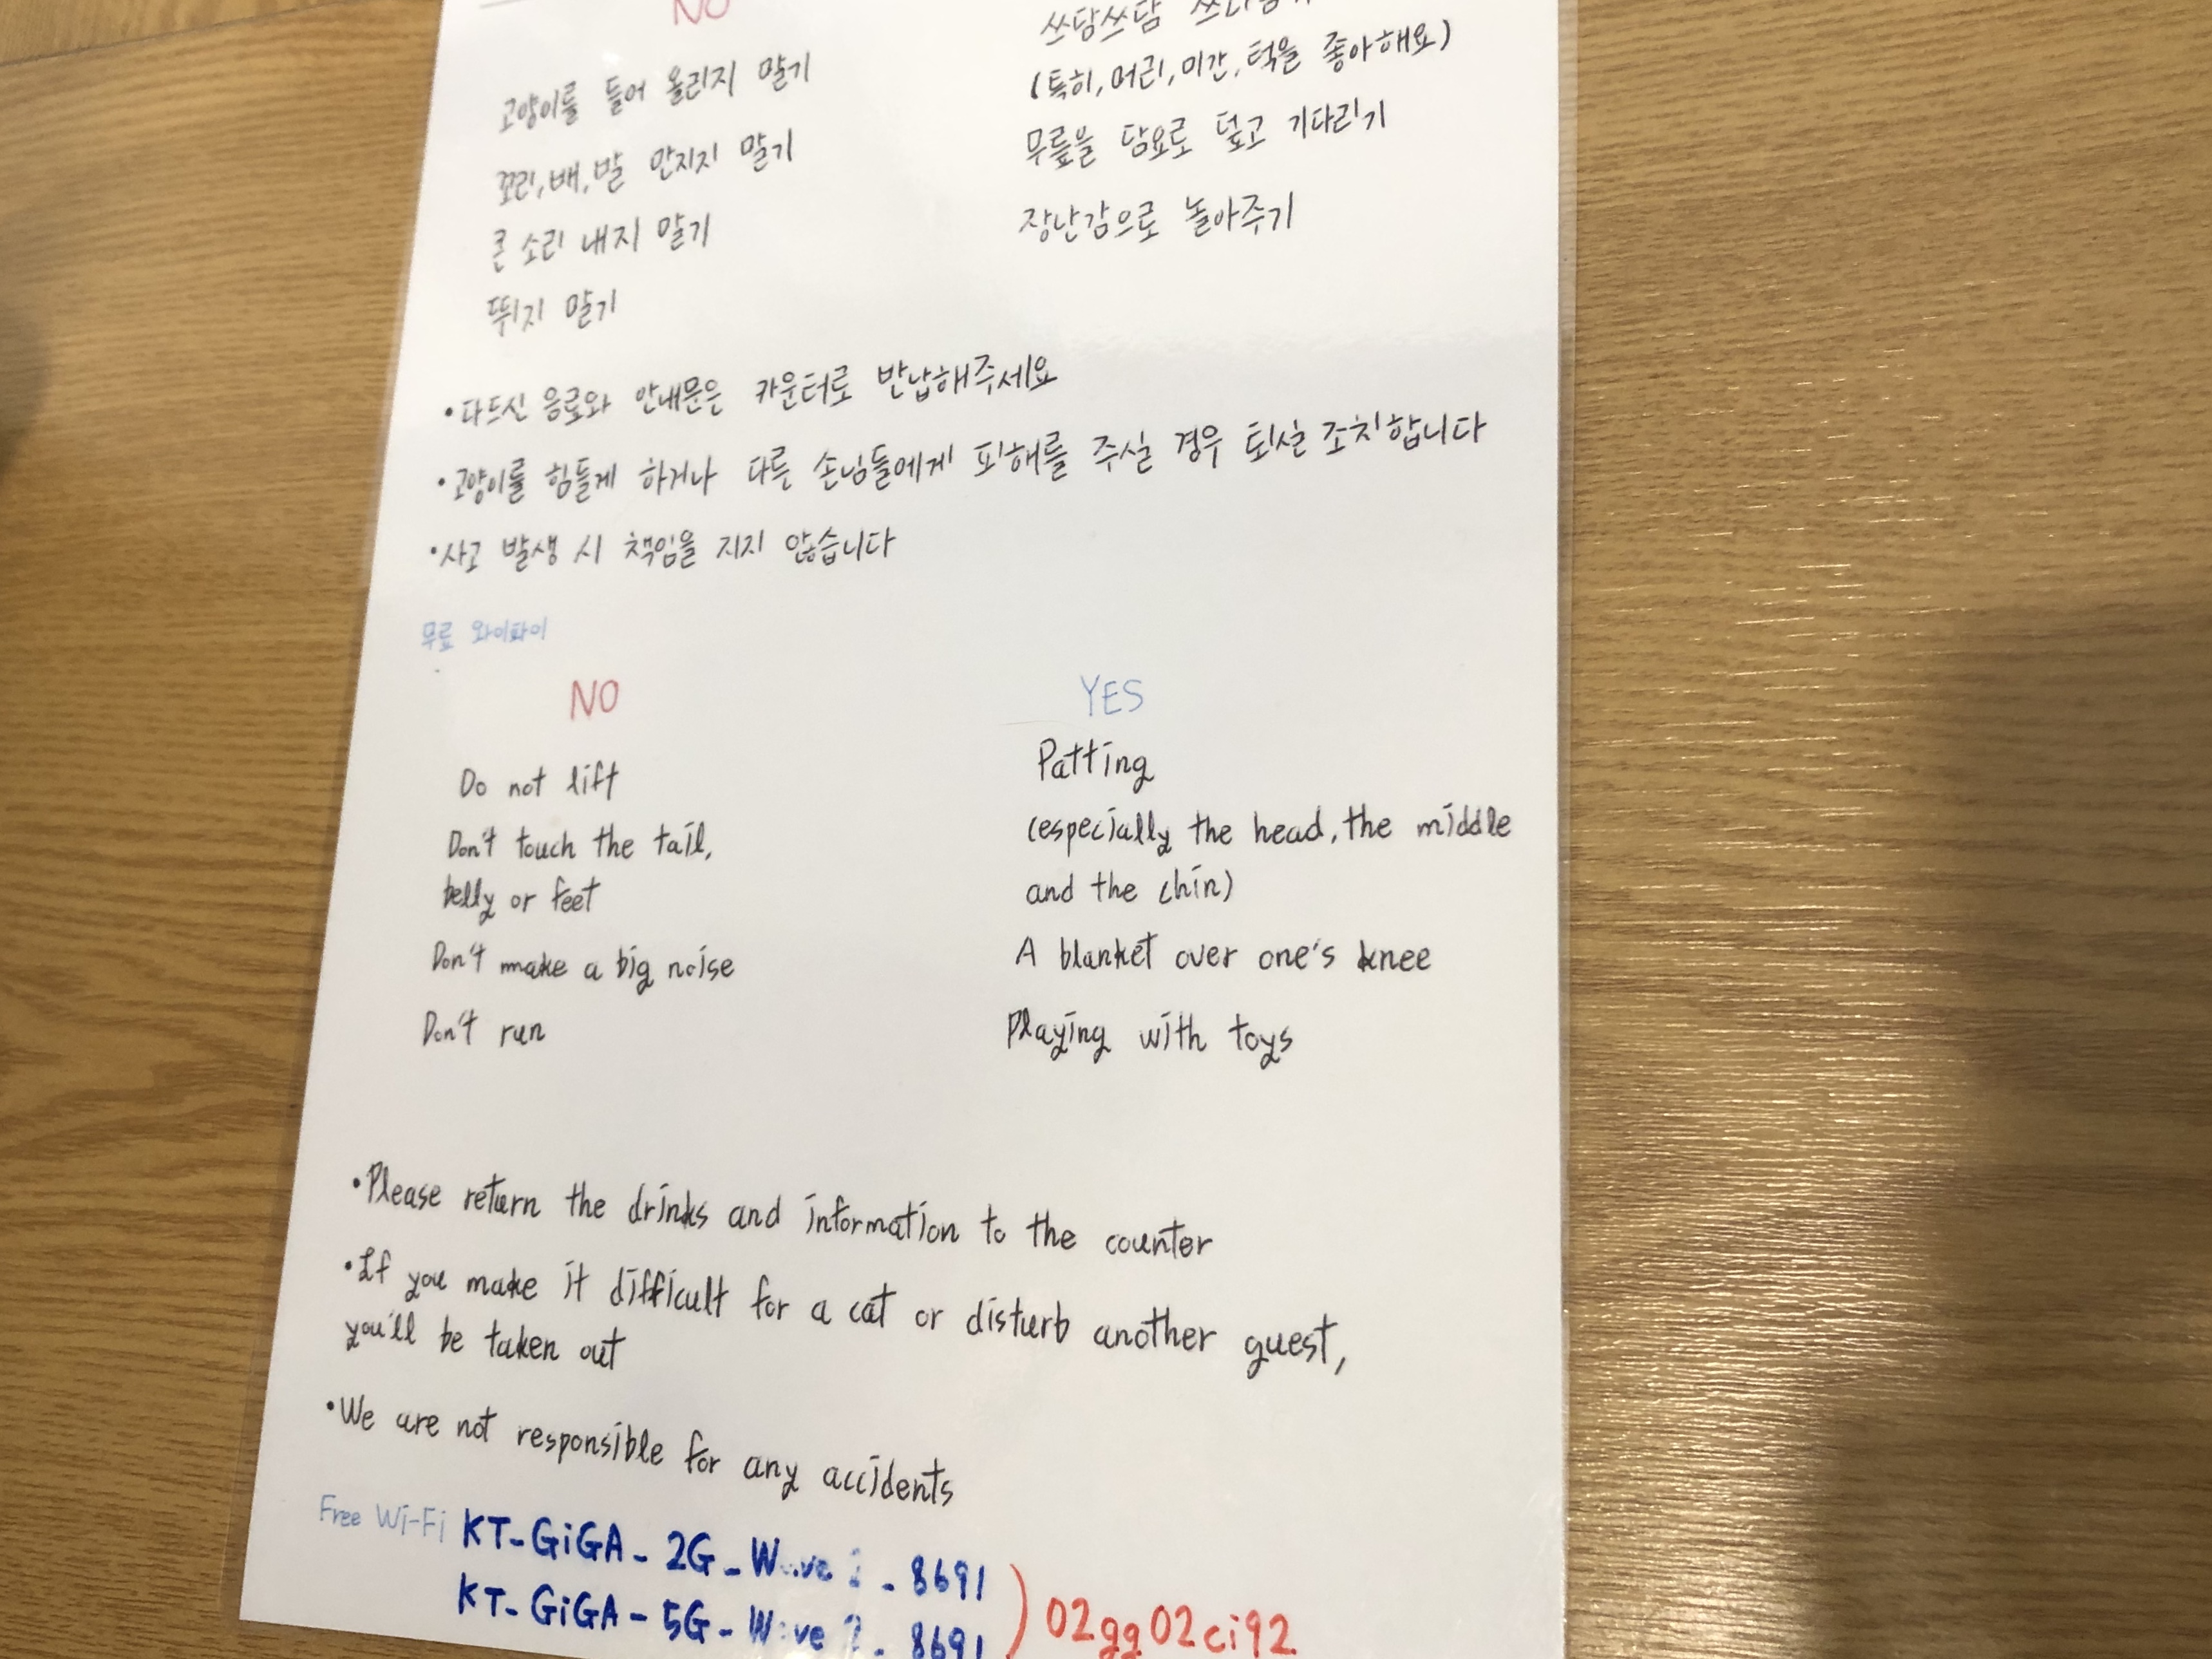 NO
고양이를 들어 올리지 말기
꼬리, 배, 발 만지지 말기
큰 소리 내지 말기
뛰지 말기
쓰담쓰담
(특히, 머리, 미간, 턱을 좋아해요)
무릎을 담요로 덮고 기다리기
장난감으로 놀아주기
•다드신 음료와 안내문은 카운터로 반납해주세요
•고양이를 힘들게 하거나 다른 손님들에게 피해를 주실 경우 퇴실 조치합니다
•사고 발생 시 책임을 지지 않습니다
무료 와이파이
NO
Do not lift
Don't touch the tail,
belly or feet
Don't make a big noise
Don't run
YES
Patting
(especially the head, the middle
and the chin)
A blanket over one's knee
Playing with toys
•Please return the drinks and information to the counter
•If you make it difficult for a cat or disturb another guest,
you'll be taken out
•We are not responsible for any accidents
Free Wi-Fi KT-GiGA-2G-Wave 2-8691
KT-GiGA-5G-Wave 2-8691
) 02gg02ci92